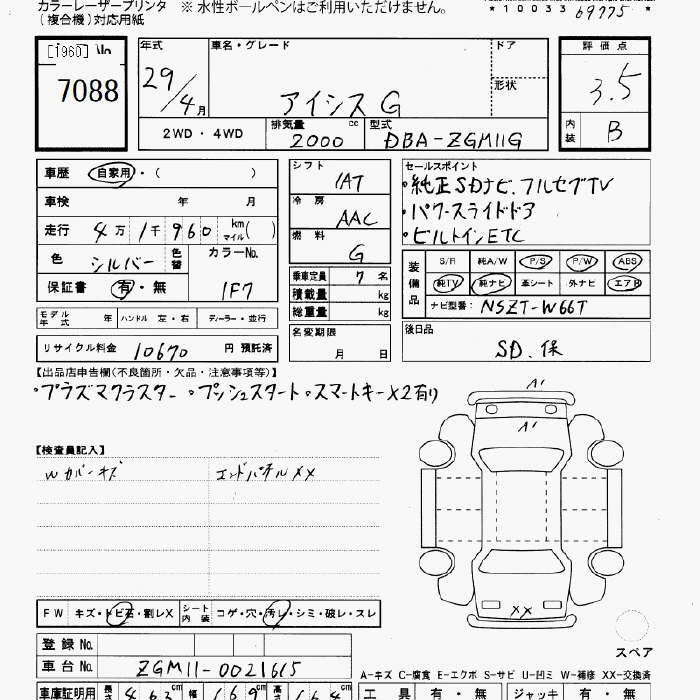 カラーレーザープリンタ ※ 水性ボールペンはご利用いただけません。
(複合機)対応用紙
*10033 69775 *
[1960]
7088
年式 29/4月
車名・グレード アイシス G
ドア
形状
2WD・4WD
排気量 2000 cc
型式 DBA-ZGM11G
評価点 3.5
内装 B
車歴 自家用・( )
車検 年 月
走行 4万1千960 km マイル( )
色 シルバー 色替
カラーNo. 1F7
保証書 有・無
モデル年式 年 ハンドル 左・右 ディーラー・並行
リサイクル料金 10670 円 預託済
シフト IAT
冷房 AAC
燃料 G
乗車定員 7 名
積載量 kg
総重量 kg
名変期限
月 日
セールスポイント
・純正SDナビ.フルセグTV
・パワースライドドア
・ビルトインETC
装備品
S/R 純A/W P/S P/W ABS
純TV 純ナビ 革シート 外ナビ エアB
ナビ型番: NSZT-W66T
後日品
SD.保
【出品店申告欄(不良箇所・欠品・注意事項等)】
・プラズマクラスター ・プッシュスタート ・スマートキー×2有り
【検査員記入】
Wカバーキズ
エンドパネルXX
A1
A1
XX
スペア
FW キズ・トビ石・割レX
シート内装 コゲ・穴・汚レ・シミ・破レ・スレ
登録No.
車台No. ZGM11-0021615
A-キズ C-腐食 E-エクボ S-サビ U-凹ミ W-補修 XX-交換済
車庫証明用 長さ 463cm 幅 169cm 高さ 164cm
工具 有・無 ジャッキ 有・無